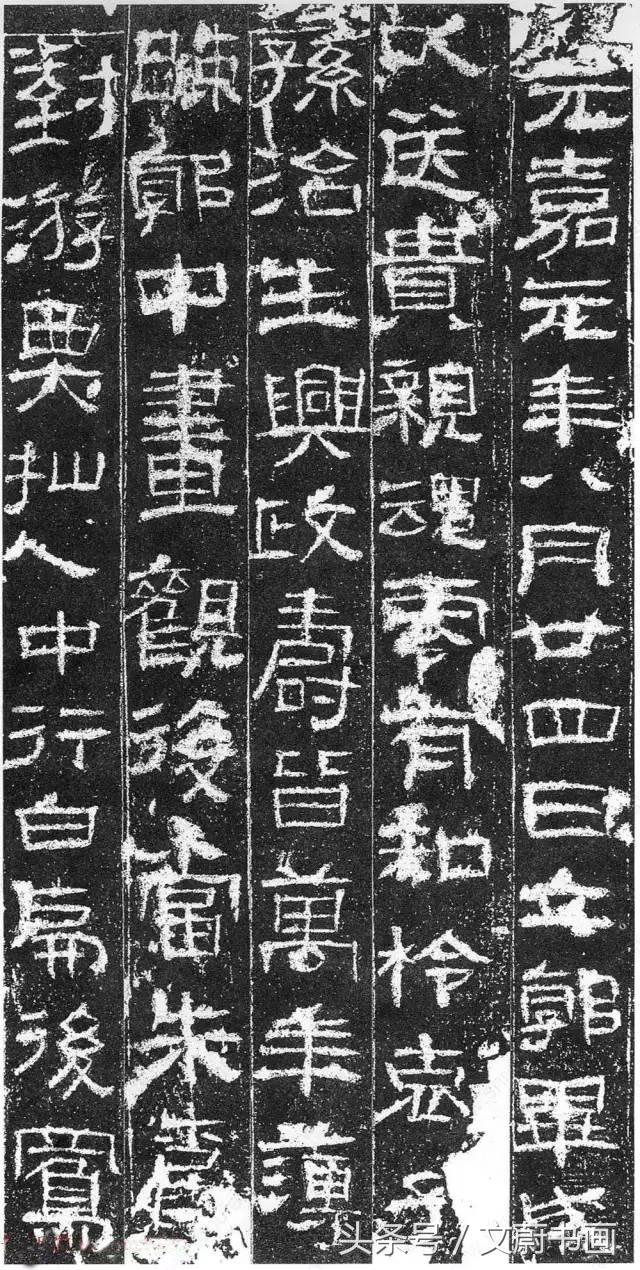 元嘉元年八月廿四日立郭畢成
以送貴親魂零有知柃哀子
孫治生興政壽皆萬年薄
踈郭中畫觀後當朱爵
對游人中行白虎後鳳
头条号/文蔚书画